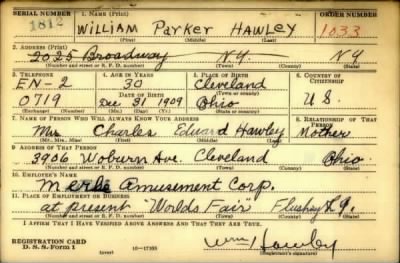 SERIAL NUMBER 1. NAME (Print) ORDER NUMBER
1812 WILLIAM Parker HAWLEY 1033
(First) (Middle) (Last)
2. ADDRESS (Print)
2025 Broadway N.Y. N.Y.
(Number and street or R. F. D. number) (Town) (County) (State)
3. TELEPHONE 4. AGE IN YEARS 5. PLACE OF BIRTH 6. COUNTRY OF CITIZENSHIP
EN-2 30 Cleveland
DATE OF BIRTH (Town or county)
0719 Dec 31 1909 Ohio U.S.
(Exchange) (Number) (Mo.) (Day) (Yr.) (State or country)
7. NAME OF PERSON WHO WILL ALWAYS KNOW YOUR ADDRESS 8. RELATIONSHIP OF THAT PERSON
Mrs Charles Eduard Hawley Mother
(Mr., Mrs., Miss) (First) (Middle) (Last)
9. ADDRESS OF THAT PERSON
3906 Woburn Ave. Cleveland Ohio
(Number and street or R. F. D. number) (Town) (County) (State)
10. EMPLOYER'S NAME
Amusement Corp.
11. PLACE OF EMPLOYMENT OR BUSINESS
at present "Worlds Fair"
(Number and street or R. F. D. number) (Town) (County) (State)
I AFFIRM THAT I HAVE VERIFIED ABOVE ANSWERS AND THAT THEY ARE TRUE.
REGISTRATION CARD
D. S. S. Form 1 16-17105 Wm Hawley
(Registrant's signature)